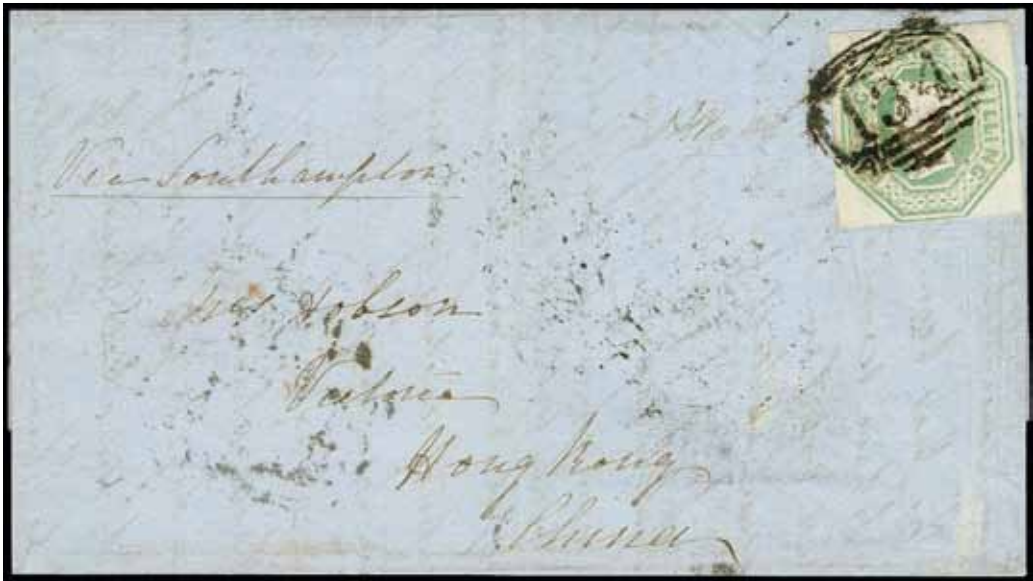 Via Southampton
Mrs Hobson
Victoria
Hong Kong
China
ILLING